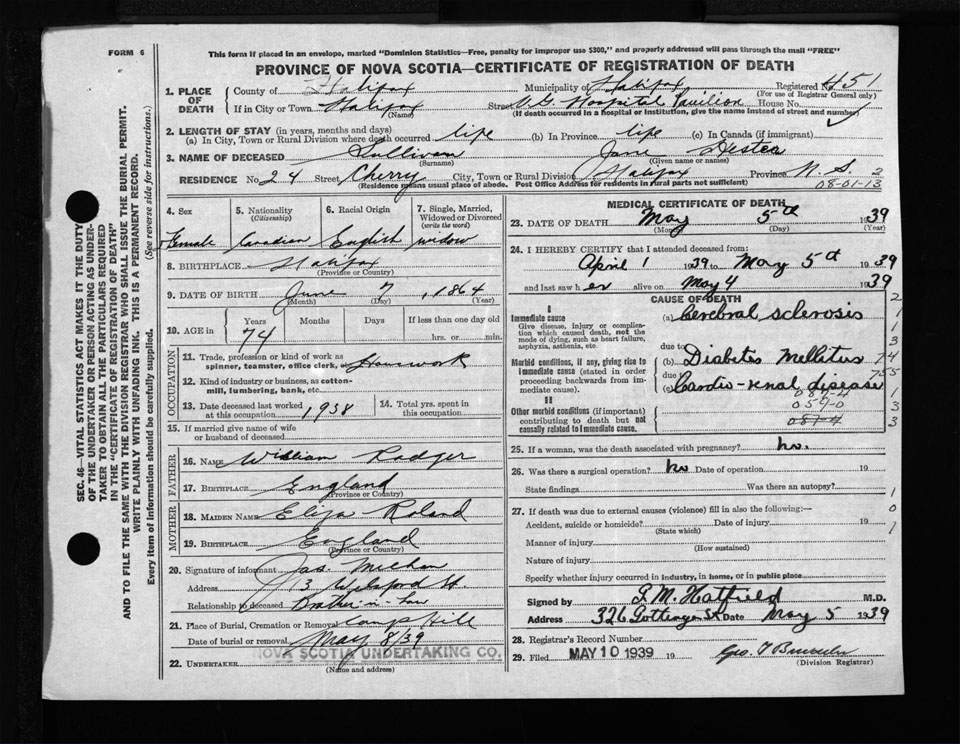 FORM 6
This form if placed in an envelope, marked "Dominion Statistics—Free, penalty for improper use $300," and properly addressed will pass through the mail "FREE"
PROVINCE OF NOVA SCOTIA—CERTIFICATE OF REGISTRATION OF DEATH
1. PLACE OF DEATH County of Halifax Municipality of Halifax Registered No. 451
(For use of Registrar General only)
If in City or Town Halifax (Name) Street V.G. Hospital Pavilion House No.
(If death occurred in a hospital or institution, give the name instead of street and number)
2. LENGTH OF STAY (in years, months and days)
(a) In City, Town or Rural Division where death occurred life (b) In Province life (c) In Canada (if immigrant)
3. NAME OF DECEASED Sullivan (Surname) Jane (Given name or names)
RESIDENCE No. 24 Street Cherry City, Town or Rural Division Halifax Province N. S. 2
(Residence means usual place of abode. Post Office Address for residents in rural parts not sufficient) 08-01-13
4. Sex Female
5. Nationality (Citizenship) Canadian
6. Racial Origin English
7. Single, Married, Widowed or Divorced (write the word) widow
8. BIRTHPLACE Halifax
(Province or Country)
9. DATE OF BIRTH June (Month) 7 (Day), 1864 (Year)
10. AGE in Years 74 Months Days If less than one day old hrs. or min.
OCCUPATION
11. Trade, profession or kind of work as spinner, teamster, office clerk, etc. Housework
12. Kind of industry or business, as cotton-mill, lumbering, bank, etc.
13. Date deceased last worked at this occupation 1938
14. Total yrs. spent in this occupation
15. If married give name of wife or husband of deceased
FATHER
16. NAME William Rodger
17. BIRTHPLACE England
(Province or Country)
MOTHER
18. MAIDEN NAME Eliza Roland
19. BIRTHPLACE England
(Province or Country)
20. Signature of informant Jas.
Address 13 St.
Relationship to deceased Brother in Law
21. Place of Burial, Cremation or Removal Camp Hill
Date of burial or removal May 8/39
22. UNDERTAKER NOVA SCOTIA UNDERTAKING CO.
(Name and address)
MEDICAL CERTIFICATE OF DEATH
23. DATE OF DEATH May (Month) 5th (Day) 1939 (Year)
24. I HEREBY CERTIFY that I attended deceased from:
April 1 1939 to May 5th 1939
and last saw her alive on May 4 1939
CAUSE OF DEATH
I
Immediate cause (a) Cerebral sclerosis
Give disease, injury or complication which caused death, not the mode of dying, such as heart failure, asphyxia, asthenia, etc.
due to
Morbid conditions, if any, giving rise to immediate cause (stated in order proceeding backwards from immediate cause).
(b) Diabetes Mellitus
due to
(c) Cardio-renal disease
II
Other morbid conditions (if important) contributing to death but not causally related to immediate cause.
25. If a woman, was the death associated with pregnancy? no.
26. Was there a surgical operation? no Date of operation 19
State findings Was there an autopsy?
27. If death was due to external causes (violence) fill in also the following:—
Accident, suicide or homicide? (State which) Date of injury 19
Manner of injury
(How sustained)
Nature of injury
Specify whether injury occurred in industry, in home, or in public place
Signed by G. M. Hatfield M.D.
Address 326 Gottingen St. Date May 5 1939
28. Registrar's Record Number
29. Filed MAY 10 1939 19
(Division Registrar)
SEC. 46—VITAL STATISTICS ACT MAKES IT THE DUTY OF THE UNDERTAKER OR PERSON ACTING AS UNDERTAKER TO OBTAIN ALL THE PARTICULARS REQUIRED IN THE "CERTIFICATE OF REGISTRATION OF DEATH"
AND TO FILE THE SAME WITH THE DIVISION REGISTRAR WHO SHALL ISSUE THE BURIAL PERMIT.
WRITE PLAINLY WITH UNFADING INK. THIS IS A PERMANENT RECORD.
Every item of information should be carefully supplied. (See reverse side for instructions.)